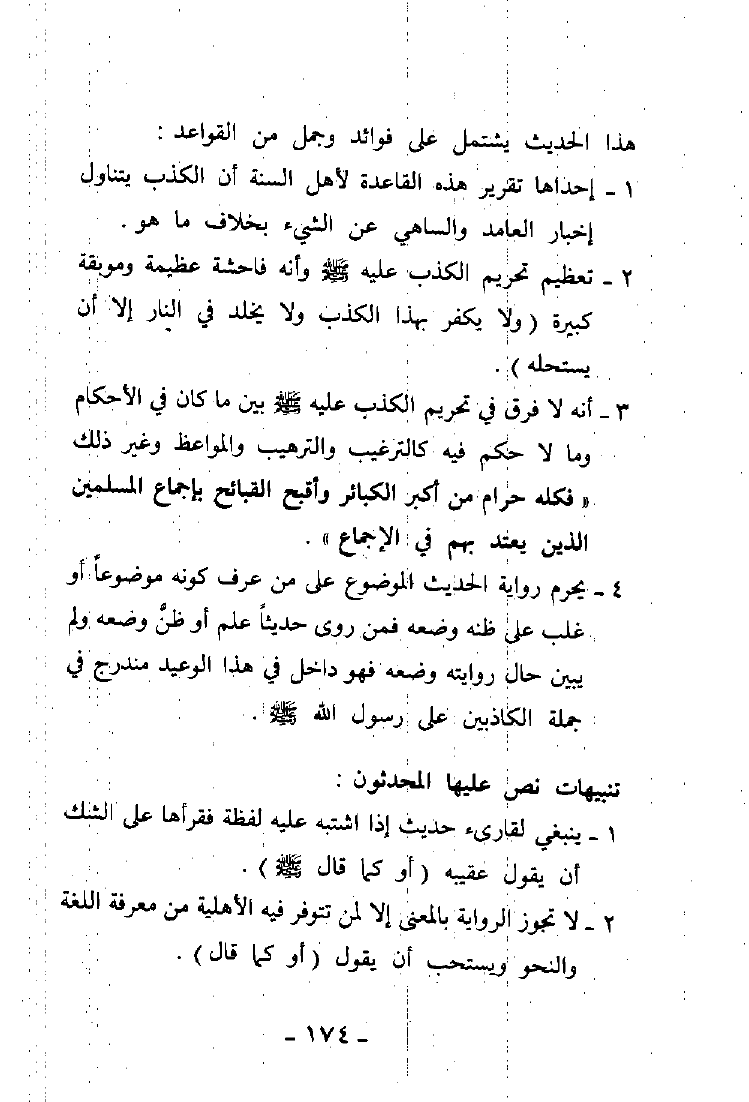 هذا الحديث يشتمل على فوائد وجمل من القواعد :
١ - إحداها تقرير هذه القاعدة لأهل السنة أن الكذب يتناول
إخبار العامد والساهي عن الشيء بخلاف ما هو .
٢ - تعظيم تحريم الكذب عليه ﷺ وأنه فاحشة عظيمة وموبقة
كبيرة ( ولا يكفر بهذا الكذب ولا يخلد في النار إلا أن
يستحله ) .
٣ - أنه لا فرق في تحريم الكذب عليه ﷺ بين ما كان في الأحكام
وما لا حكم فيه كالترغيب والترهيب والمواعظ وغير ذلك
« فكله حرام من أكبر الكبائر وأقبح القبائح بإجماع المسلمين
الذين يعتد بهم في الإجماع » .
٤ - يحرم رواية الحديث الموضوع على من عرف كونه موضوعاً أو
غلب على ظنه وضعه فمن روى حديثاً علم أو ظنَّ وضعه ولم
يبين حال روايته وضعه فهو داخل في هذا الوعيد مندرج في
جملة الكاذبين على رسول الله ﷺ .
تنبيهات نص عليها المحدثون :
١ - ينبغي لقارىء حديث إذا اشتبه عليه لفظة فقرأها على الشك
أن يقول عقيبه ( أو كما قال ﷺ ) .
٢ - لا تجوز الرواية بالمعنى إلا لمن تتوفر فيه الأهلية من معرفة اللغة
والنحو ويستحب أن يقول ( أو كما قال ) .
- ١٧٤ -